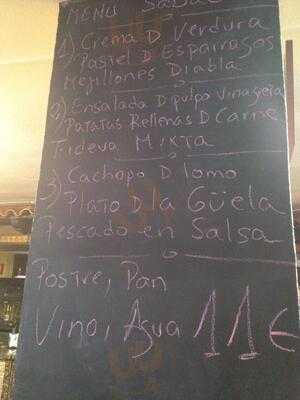 MENU Sabad
1) Crema D Verdura
Pastel D Esparragos
Mejillones Diabla
2) Ensalada D pulpo Vinagreta
Patatas Rellenas D Carne
Tudela Mixta
3) Cachopo D lomo
Plato D la Güela
Pescado en Salsa
Postre, Pan
Vino, Agua 11€